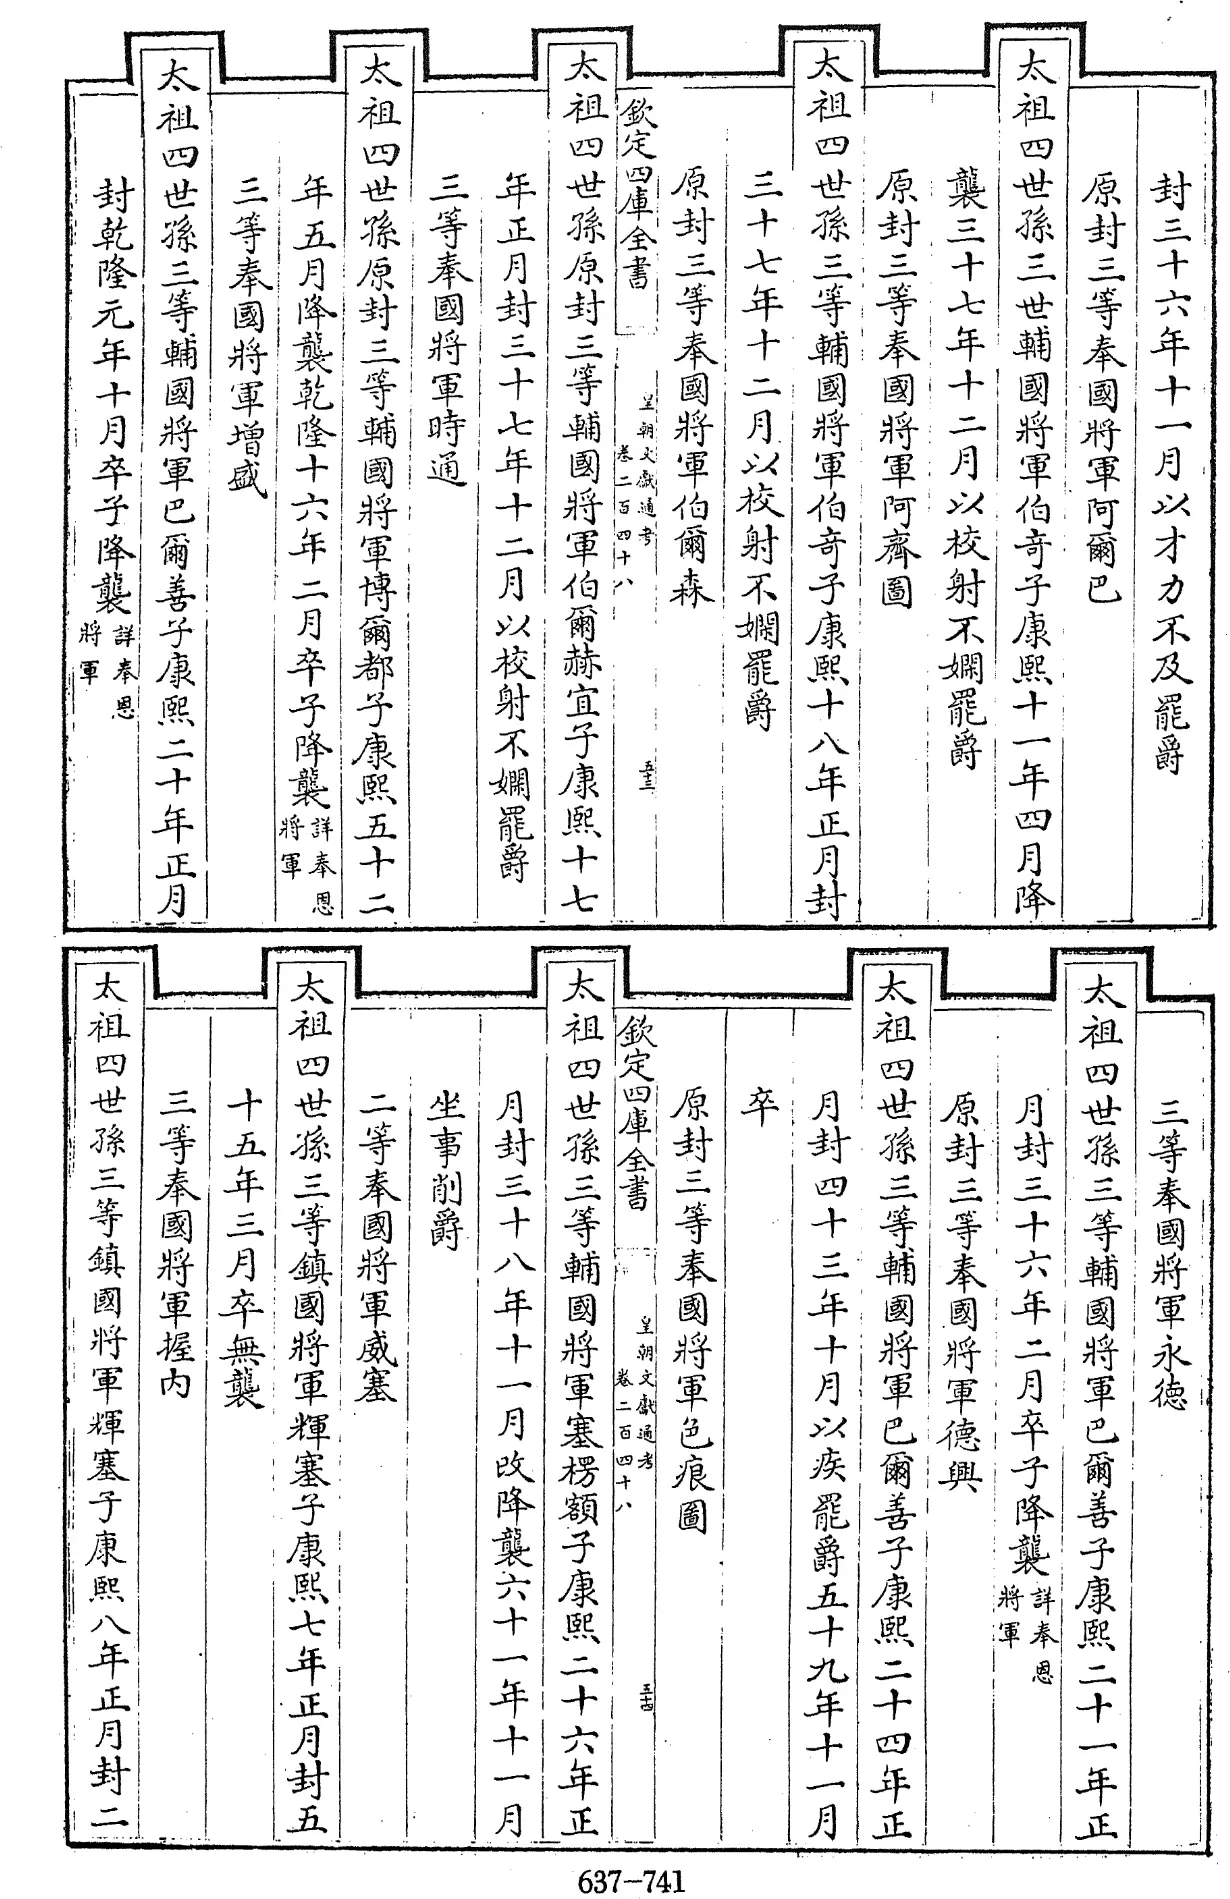 封三十六年十一月以才力不及罷爵
原封三等奉國將軍阿爾巴
太祖四世孫三世輔國將軍伯奇子康熙十一年四月降
襲三十七年十二月以校射不嫻罷爵
原封三等奉國將軍阿齊圖
太祖四世孫三等輔國將軍伯奇子康熙十八年正月封
三十七年十二月以校射不嫻罷爵
原封三等奉國將軍伯爾森
欽定四庫全書
皇朝文獻通考
卷二百四十八
五十三
太祖四世孫原封三等輔國將軍伯爾赫宜子康熙十七
年正月封三十七年十二月以校射不嫻罷爵
三等奉國將軍時通
太祖四世孫原封三等輔國將軍博爾都子康熙五十二
年五月降襲乾隆十六年二月卒子降襲詳奉恩
將軍
三等奉國將軍增盛
太祖四世孫三等輔國將軍巴爾善子康熙二十年正月
封乾隆元年十月卒子降襲詳奉恩
將軍
三等奉國將軍永德
太祖四世孫三等輔國將軍巴爾善子康熙二十一年正
月封三十六年二月卒子降襲詳奉恩
將軍
原封三等奉國將軍德興
太祖四世孫三等輔國將軍巴爾善子康熙二十四年正
月封四十三年十月以疾罷爵五十九年十一月
卒
原封三等奉國將軍色痕圖
欽定四庫全書
皇朝文獻通考
卷二百四十八
五十四
太祖四世孫三等輔國將軍塞楞額子康熙二十六年正
月封三十八年十一月改降襲六十一年十一月
坐事削爵
二等奉國將軍威塞
太祖四世孫三等鎮國將軍輝塞子康熙七年正月封五
十五年三月卒無襲
三等奉國將軍握內
太祖四世孫三等鎮國將軍輝塞子康熙八年正月封二
637-741